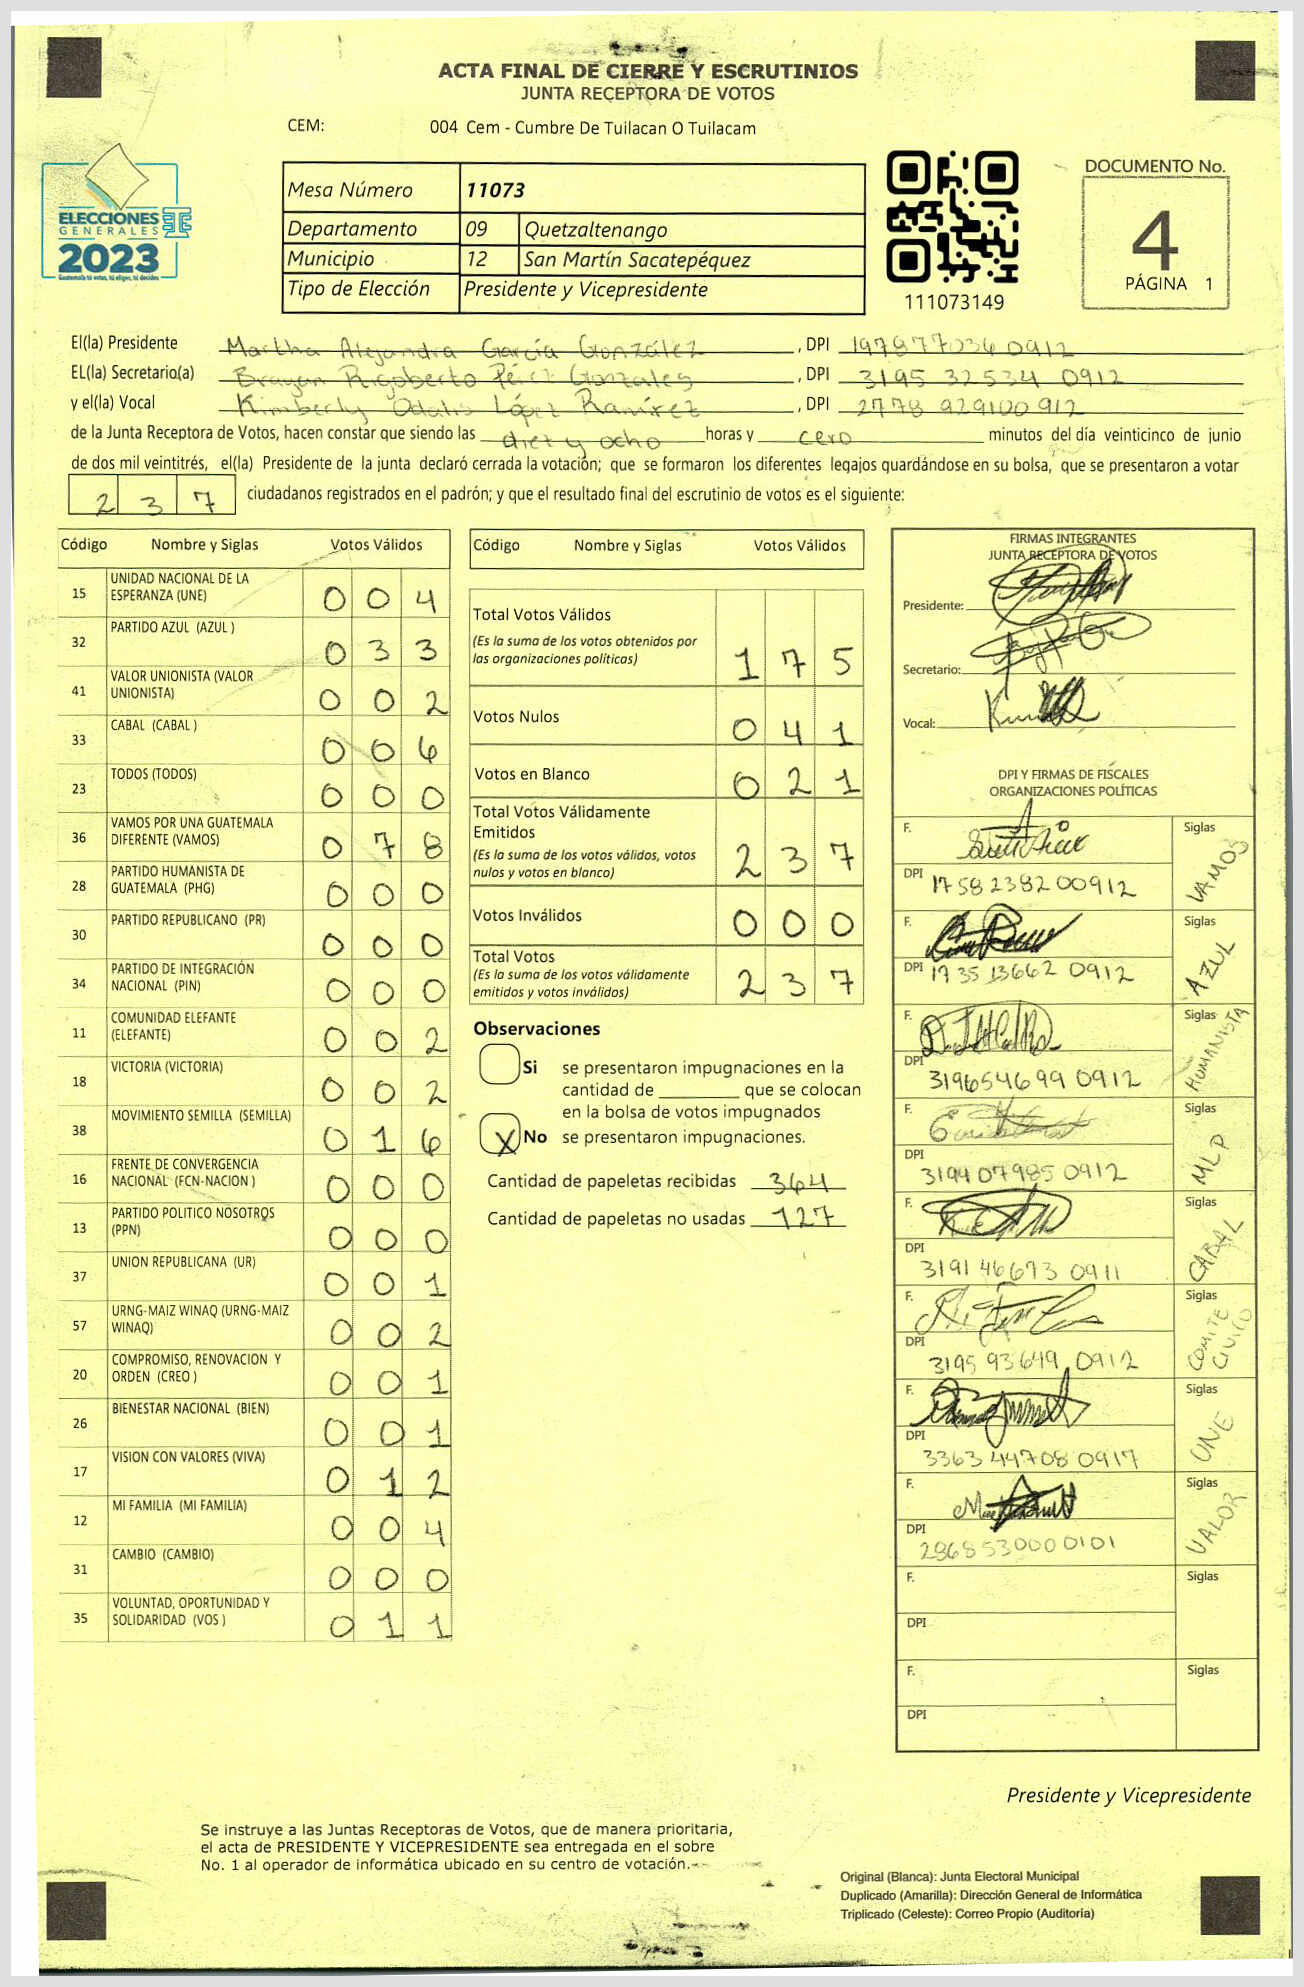 ACTA FINAL DE CIERRE Y ESCRUTINIOS
JUNTA RECEPTORA DE VOTOS
CEM: 004 Cem - Cumbre De Tuilacan O Tuilacam
ELECCIONES
GENERALES
2023
Guatemala tú votas, tú eliges, tú decides
Mesa Número 11073
Departamento 09 Quetzaltenango
Municipio 12 San Martín Sacatepéquez
Tipo de Elección Presidente y Vicepresidente
111073149
DOCUMENTO No.
4
PÁGINA 1
El(la) Presidente Martha Alejandra García González, DPI 1978770360912
EL(la) Secretario(a) Brayan Rigoberto Pérez Gonzales, DPI 3195 32534 0912
y el(la) Vocal Kimberly Odalis López Ramírez, DPI 2778 929100912
de la Junta Receptora de Votos, hacen constar que siendo las diez y ocho horas y cero minutos del día veinticinco de junio
de dos mil veintitrés, el(la) Presidente de la junta declaró cerrada la votación; que se formaron los diferentes legajos guardándose en su bolsa, que se presentaron a votar
237 ciudadanos registrados en el padrón; y que el resultado final del escrutinio de votos es el siguiente:
Código Nombre y Siglas Votos Válidos
15 UNIDAD NACIONAL DE LA ESPERANZA (UNE) 004
32 PARTIDO AZUL (AZUL ) 033
41 VALOR UNIONISTA (VALOR UNIONISTA) 002
33 CABAL (CABAL ) 006
23 TODOS (TODOS) 000
36 VAMOS POR UNA GUATEMALA DIFERENTE (VAMOS) 078
28 PARTIDO HUMANISTA DE GUATEMALA (PHG) 000
30 PARTIDO REPUBLICANO (PR) 000
34 PARTIDO DE INTEGRACIÓN NACIONAL (PIN) 000
11 COMUNIDAD ELEFANTE (ELEFANTE) 002
18 VICTORIA (VICTORIA) 002
38 MOVIMIENTO SEMILLA (SEMILLA) 016
16 FRENTE DE CONVERGENCIA NACIONAL (FCN-NACION ) 000
13 PARTIDO POLITICO NOSOTROS (PPN) 000
37 UNION REPUBLICANA (UR) 001
57 URNG-MAIZ WINAQ (URNG-MAIZ WINAQ) 002
20 COMPROMISO, RENOVACION Y ORDEN (CREO ) 001
26 BIENESTAR NACIONAL (BIEN) 001
17 VISION CON VALORES (VIVA) 012
12 MI FAMILIA (MI FAMILIA) 004
31 CAMBIO (CAMBIO) 000
35 VOLUNTAD, OPORTUNIDAD Y SOLIDARIDAD (VOS ) 011
Código Nombre y Siglas Votos Válidos
Total Votos Válidos
(Es la suma de los votos obtenidos por las organizaciones políticas) 175
Votos Nulos 041
Votos en Blanco 021
Total Votos Válidamente Emitidos
(Es la suma de los votos válidos, votos nulos y votos en blanco) 237
Votos Inválidos 000
Total Votos
(Es la suma de los votos válidamente emitidos y votos inválidos) 237
Observaciones
Si se presentaron impugnaciones en la
cantidad de ________ que se colocan
en la bolsa de votos impugnados
X No se presentaron impugnaciones.
Cantidad de papeletas recibidas 364
Cantidad de papeletas no usadas 127
FIRMAS INTEGRANTES
JUNTA RECEPTORA DE VOTOS
Presidente:
Secretario:
Vocal:
DPI Y FIRMAS DE FISCALES
ORGANIZACIONES POLÍTICAS
F. Siglas VAMOS
DPI 1758238200912
F. Siglas AZUL
DPI 1735 13662 0912
F. Siglas HUMANISTA
DPI 319654699 0912
F. Siglas MLP
DPI 319407985 0912
F. Siglas CABAL
DPI 3191 46673 0911
F. Siglas COMITE CIVICO
DPI 3195 93649 0912
F. Siglas UNE
DPI 3363 44708 0917
F. Siglas VALOR
DPI 2868530000101
F. Siglas
DPI
F. Siglas
DPI
Presidente y Vicepresidente
Se instruye a las Juntas Receptoras de Votos, que de manera prioritaria,
el acta de PRESIDENTE Y VICEPRESIDENTE sea entregada en el sobre
No. 1 al operador de informática ubicado en su centro de votación.
Original (Blanca): Junta Electoral Municipal
Duplicado (Amarilla): Dirección General de Informática
Triplicado (Celeste): Correo Propio (Auditoría)